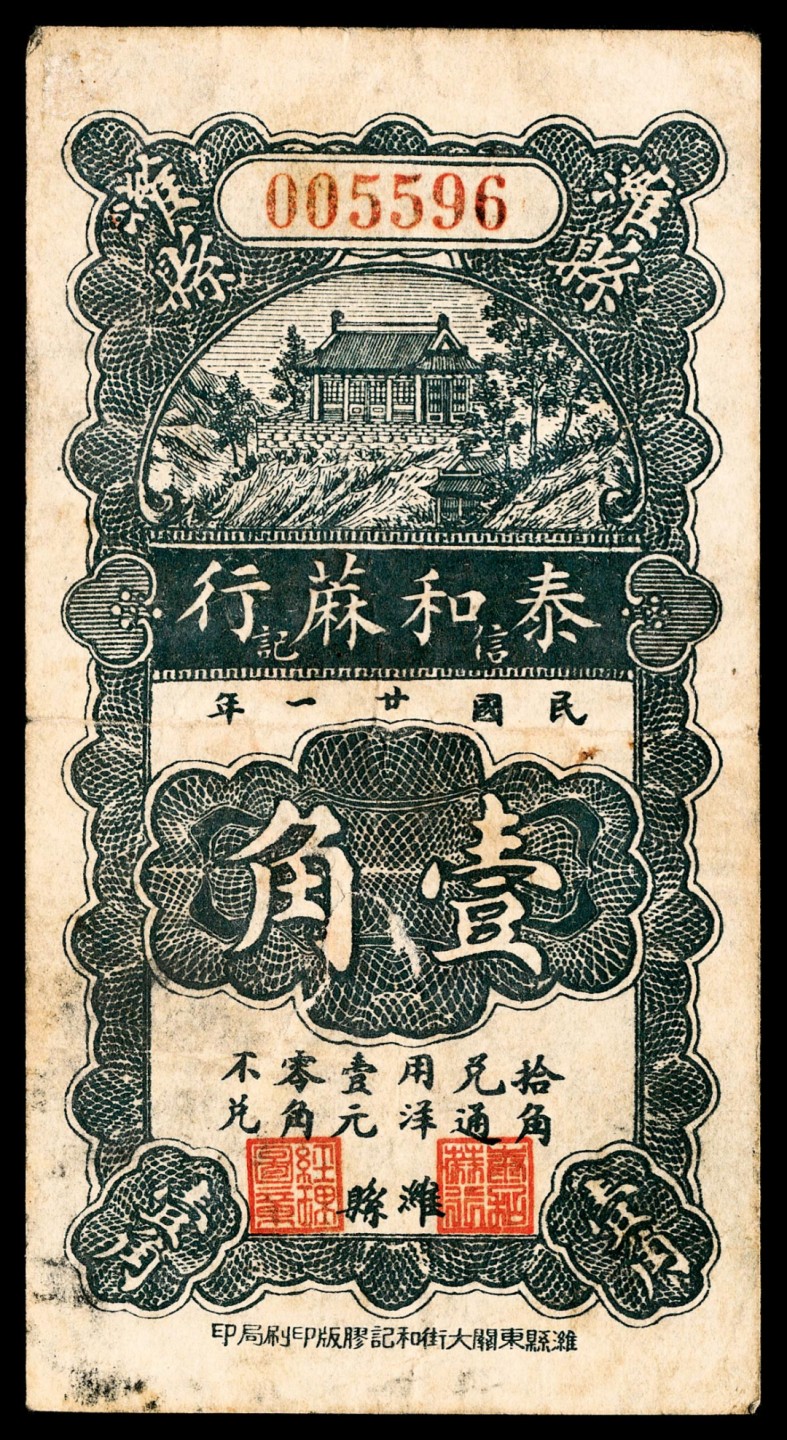 濰縣
005596
濰縣
泰和蔴行
信記
民國廿一年
壹角
拾角兑通用洋壹元零角不兑
泰和蔴行
濰縣
經理圖章
壹角
壹角
濰縣東關大街和記膠版印刷局印